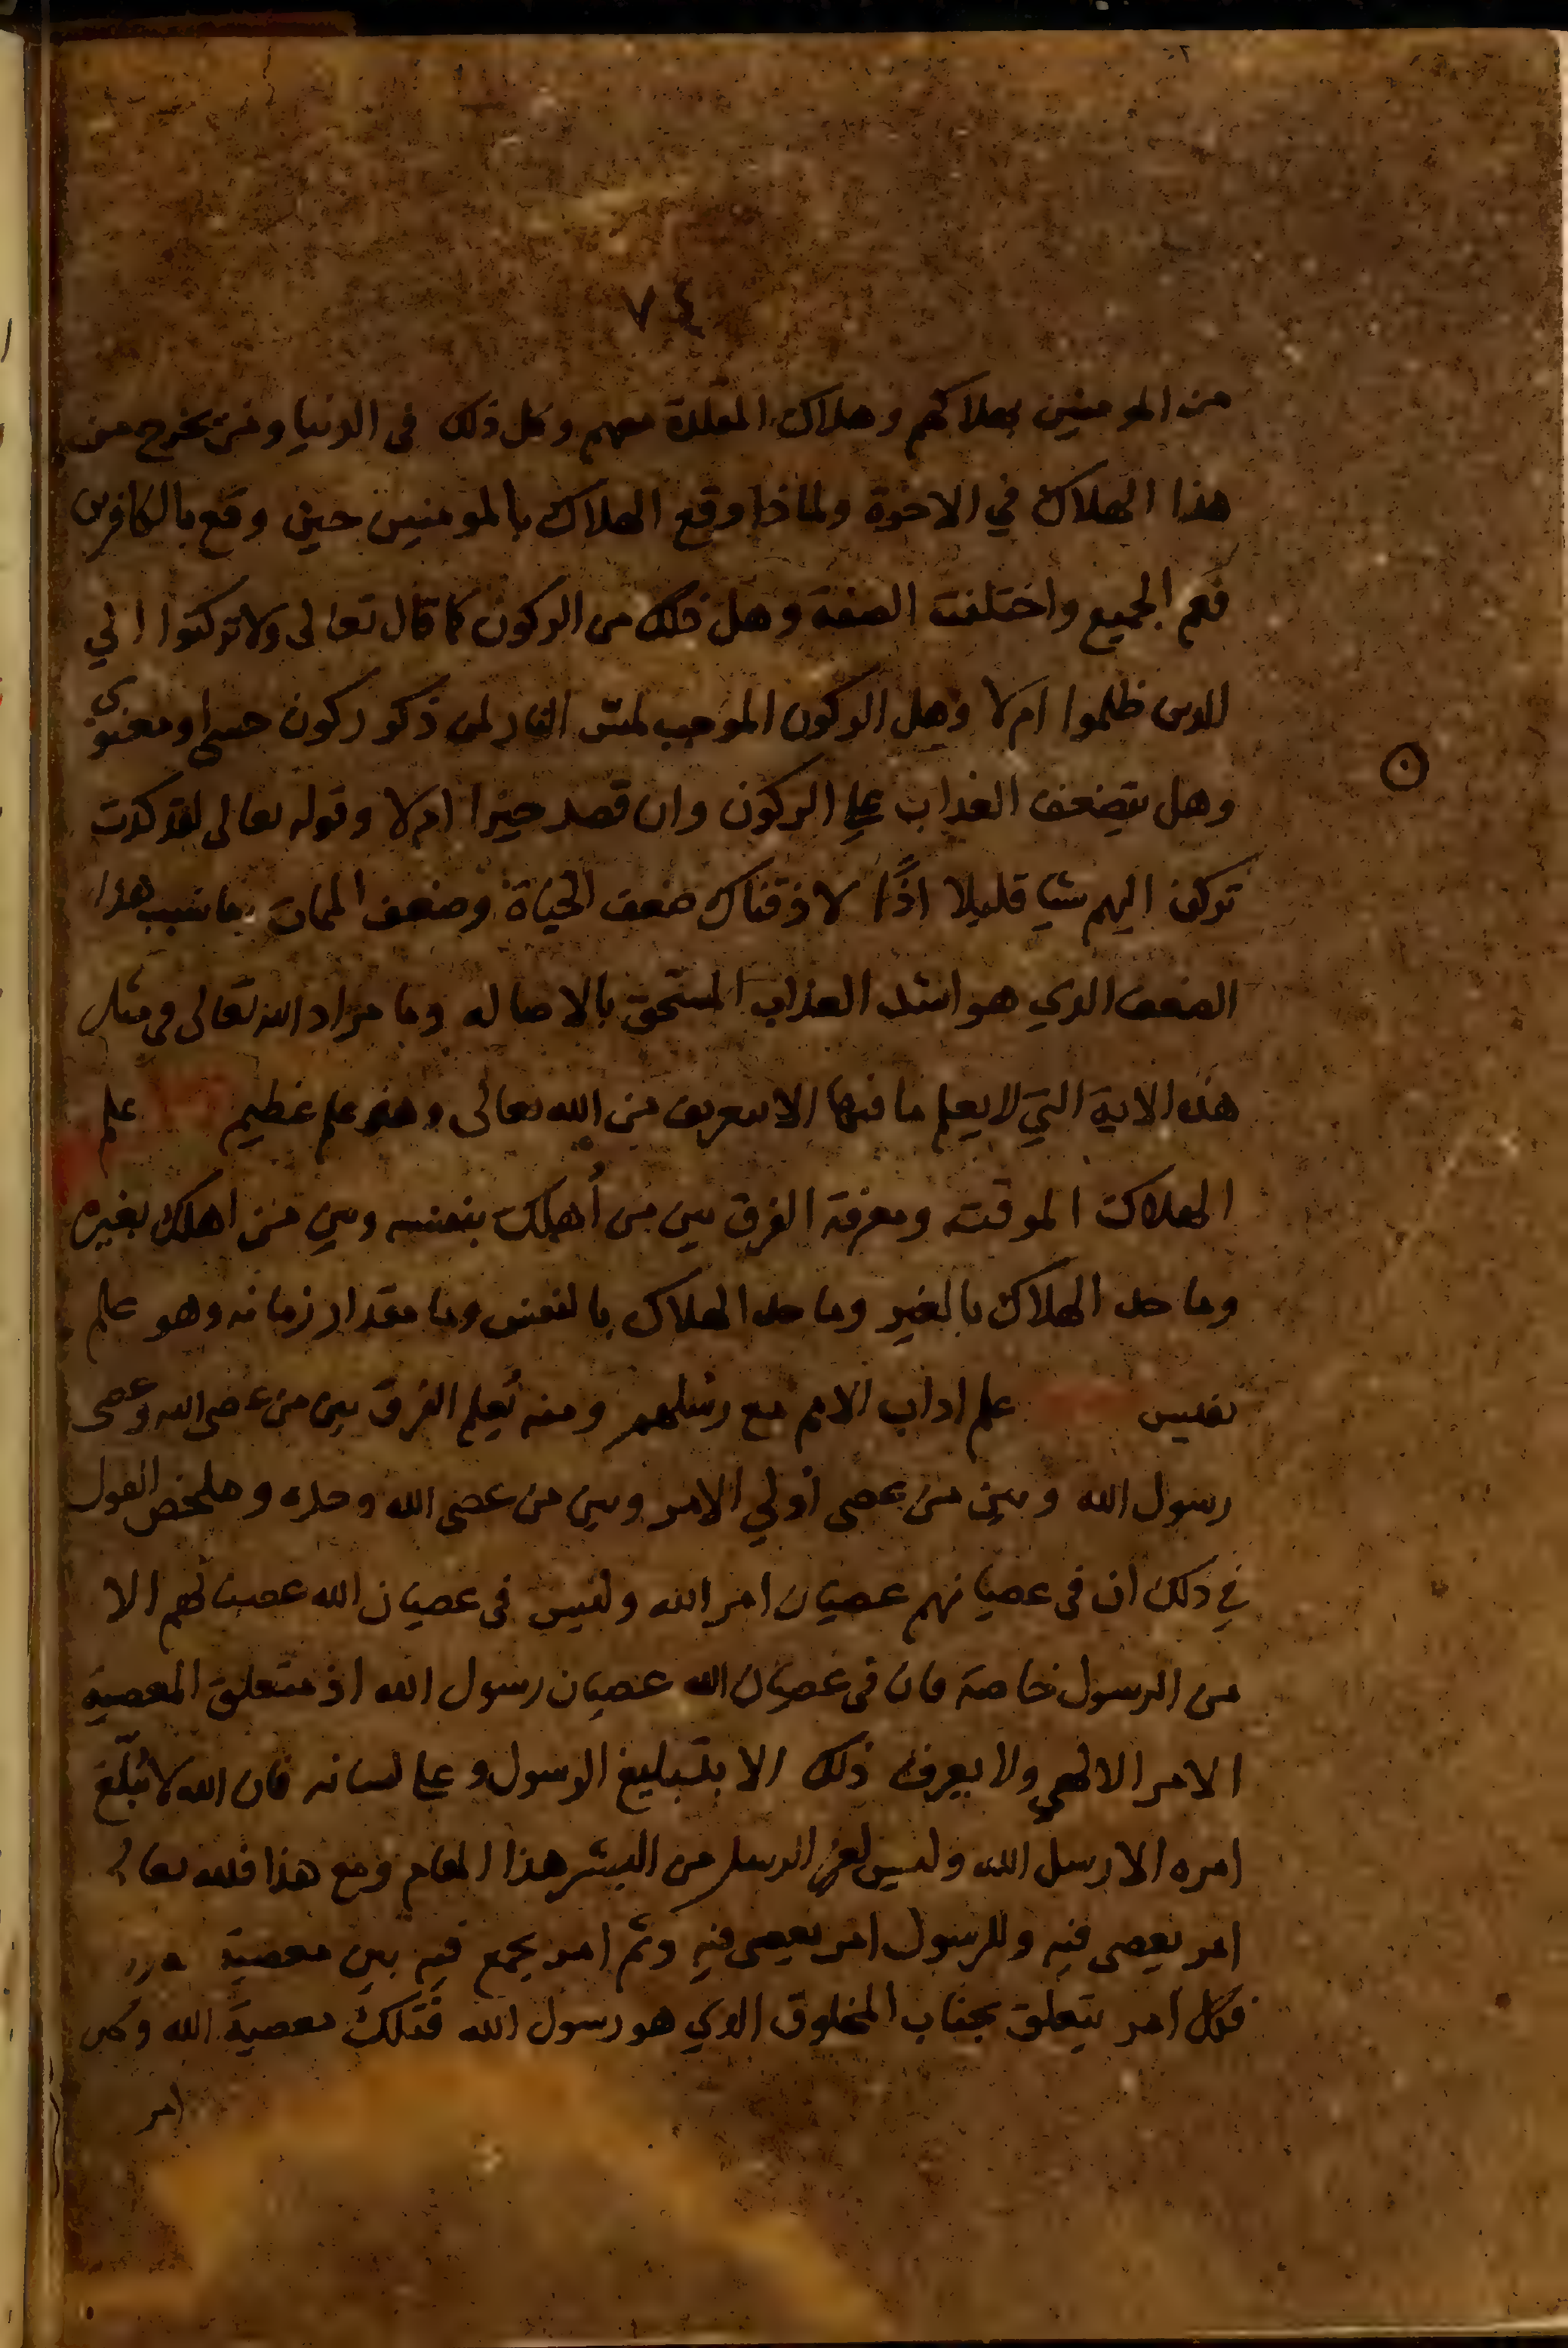 ٧٤
من المومنين بهلاكهم وهلاك المقلدة معهم وكل ذلك في الدنيا ومن يخرج من
هذا الهلاك في الاخرة ولماذا وقع الهلاك بالمومنين حين وقع بالكافرين
فعم الجميع واختلفت الصفة وهل ذلك من الركون كما قال تعالى ولا تركنوا الي
الدين ظلموا ام لا وهل الركون الموجب لمسّ النار لمن ذكر ركون حسي او معنوي
وهل يتضعف العذاب علي الركون وان قصد خيرا ام لا وقوله تعالى لقد كدت
تركن اليهم شيا قليلا اذًا لاذقناك ضعف الحياة وضعف الممات ما سبب هذا
الضعف الدي هو اشد العذاب المستحق بالاصاله وما مراد الله تعالى في مثل
هذه الاية التي لا يعلم ما فيها الا بتعريف من الله تعالى وهو علم عظيم علم
الهلاك الموقت ومعرفة الفرق بين من أهلك بنفسه وبين من اهلك بغيره
وما حد الهلاك بالغير وما حد الهلاك بالنفس وما مقدار زمانه وهو علم
نفيس علم اداب الامم مع رسلهم ومنه يُعلم الفرق بين من عصى الله وعصى
رسول الله وبين من عصى أولي الامر وبين من عصى الله وحده وملخص القول
في ذلك ان في عصيانهم عصيان امر الله وليس في عصيان الله عصيانهم الا
من الرسول خاصة فان في عصيان الله عصيان رسول الله اذ متعلق المعصية
الامر الالهي ولا يعرف ذلك الا بتبليغ الرسول وعلي لسانه فان الله لا يُبلّغ
امره الا رسل الله وليس لغير الرسل من البشر هذا المقام ومع هذا فلله تعالى
امر يعصى فيه وللرسول امر يعصى فيه وثم امر يجمع فيه بين معصية
فكل امر يتعلق بجناب المخلوق الدي هو رسول الله فتلك معصية الله وكل
امر